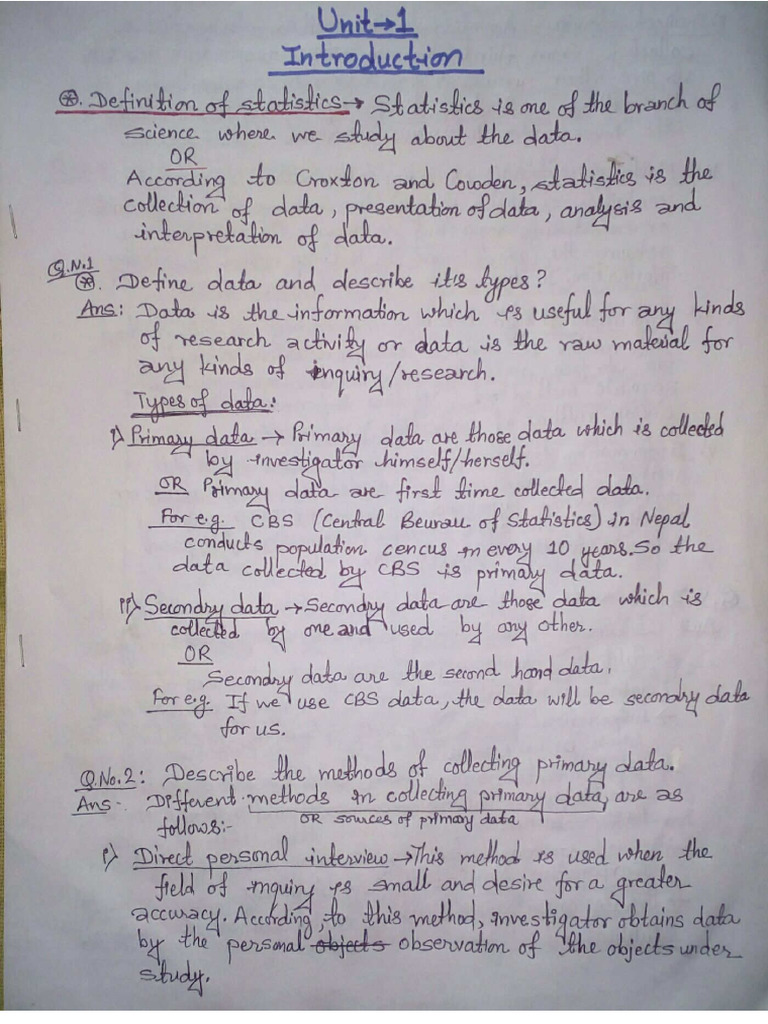 Unit→1
Introduction
⊛. Definition of statistics→ Statistics is one of the branch of
science where we study about the data.
OR
According to Croxton and Cowden, statistics is the
collection of data, presentation of data, analysis and
interpretation of data.
Q.N.1
⊛. Define data and describe it's types?
Ans: Data is the information which is useful for any kinds
of research activity or data is the raw material for
any kinds of inquiry/research.
Types of data:
i) Primary data → Primary data are those data which is collected
by investigator himself/herself.
OR Primary data are first time collected data.
For e.g. CBS (Central Beurau of Statistics) in Nepal
conducts population cencus in every 10 years. So the
data collected by CBS is primary data.
ii) Secondry data → Secondry data are those data which is
collected by one and used by any other.
OR
Secondry data are the second hand data.
For e.g. If we use CBS data, the data will be secondry data
for us.
Q.No.2: Describe the methods of collecting primary data.
Ans- Different methods in collecting primary data, are as
OR sources of primary data
follows:-
i) Direct personal interview → This method is used when the
field of inquiry is small and desire for a greater
accuracy. According to this method, investigator obtains data
by the personal objects observation of the objects under
study.